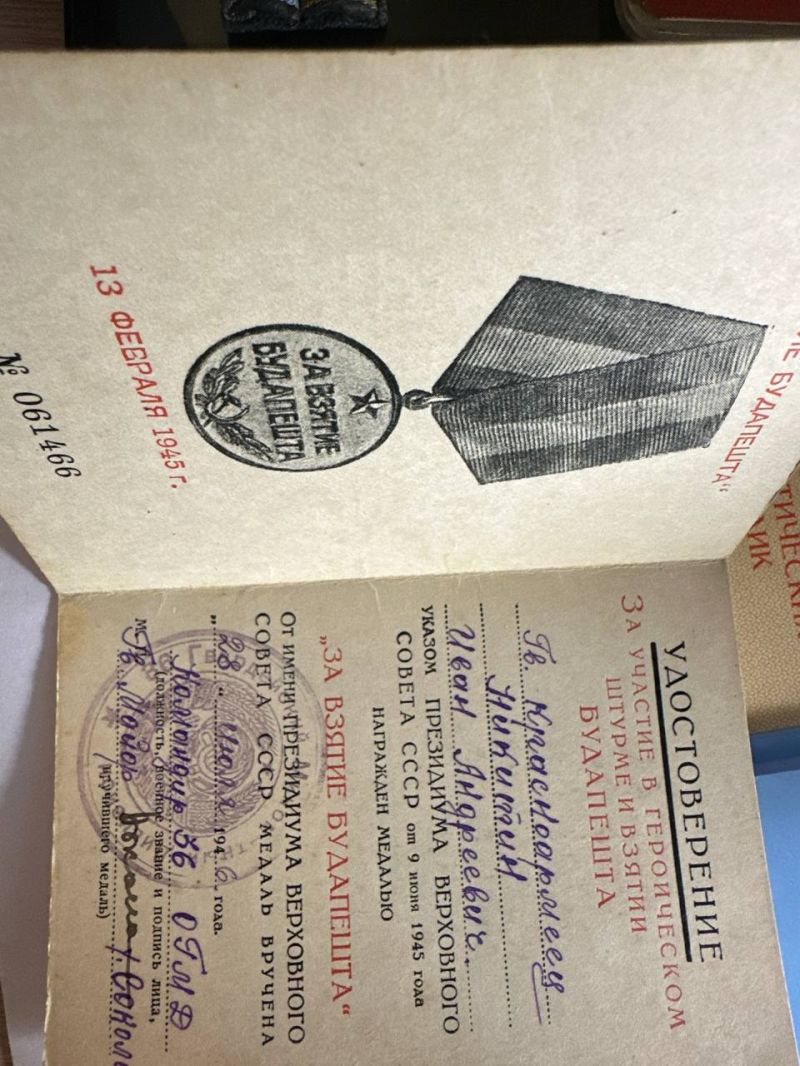 ИЕ БУДАПЕШТА“
ЗА ВЗЯТИЕ
БУДАПЕШТА
13 ФЕВРАЛЯ 1945 г.
№ 061466
УДОСТОВЕРЕНИЕ
ЗА УЧАСТИЕ В ГЕРОИЧЕСКОМ
ШТУРМЕ И ВЗЯТИИ
БУДАПЕШТА
Гв. Красноармеец
Никитин
Иван Андреевич.
УКАЗОМ ПРЕЗИДИУМА ВЕРХОВНОГО
СОВЕТА СССР от 9 июня 1945 года
НАГРАЖДЕН МЕДАЛЬЮ
„ЗА ВЗЯТИЕ БУДАПЕШТА“
От имени ПРЕЗИДИУМА ВЕРХОВНОГО
СОВЕТА СССР МЕДАЛЬ ВРУЧЕНА
„28“ июля 1946 года.
Командир 36 ОГМД
(должность, военное звание и подпись лица,
М. П.
Гв. Майор /Соколо
вручившего медаль)
ТИЧЕСКИ
ИК